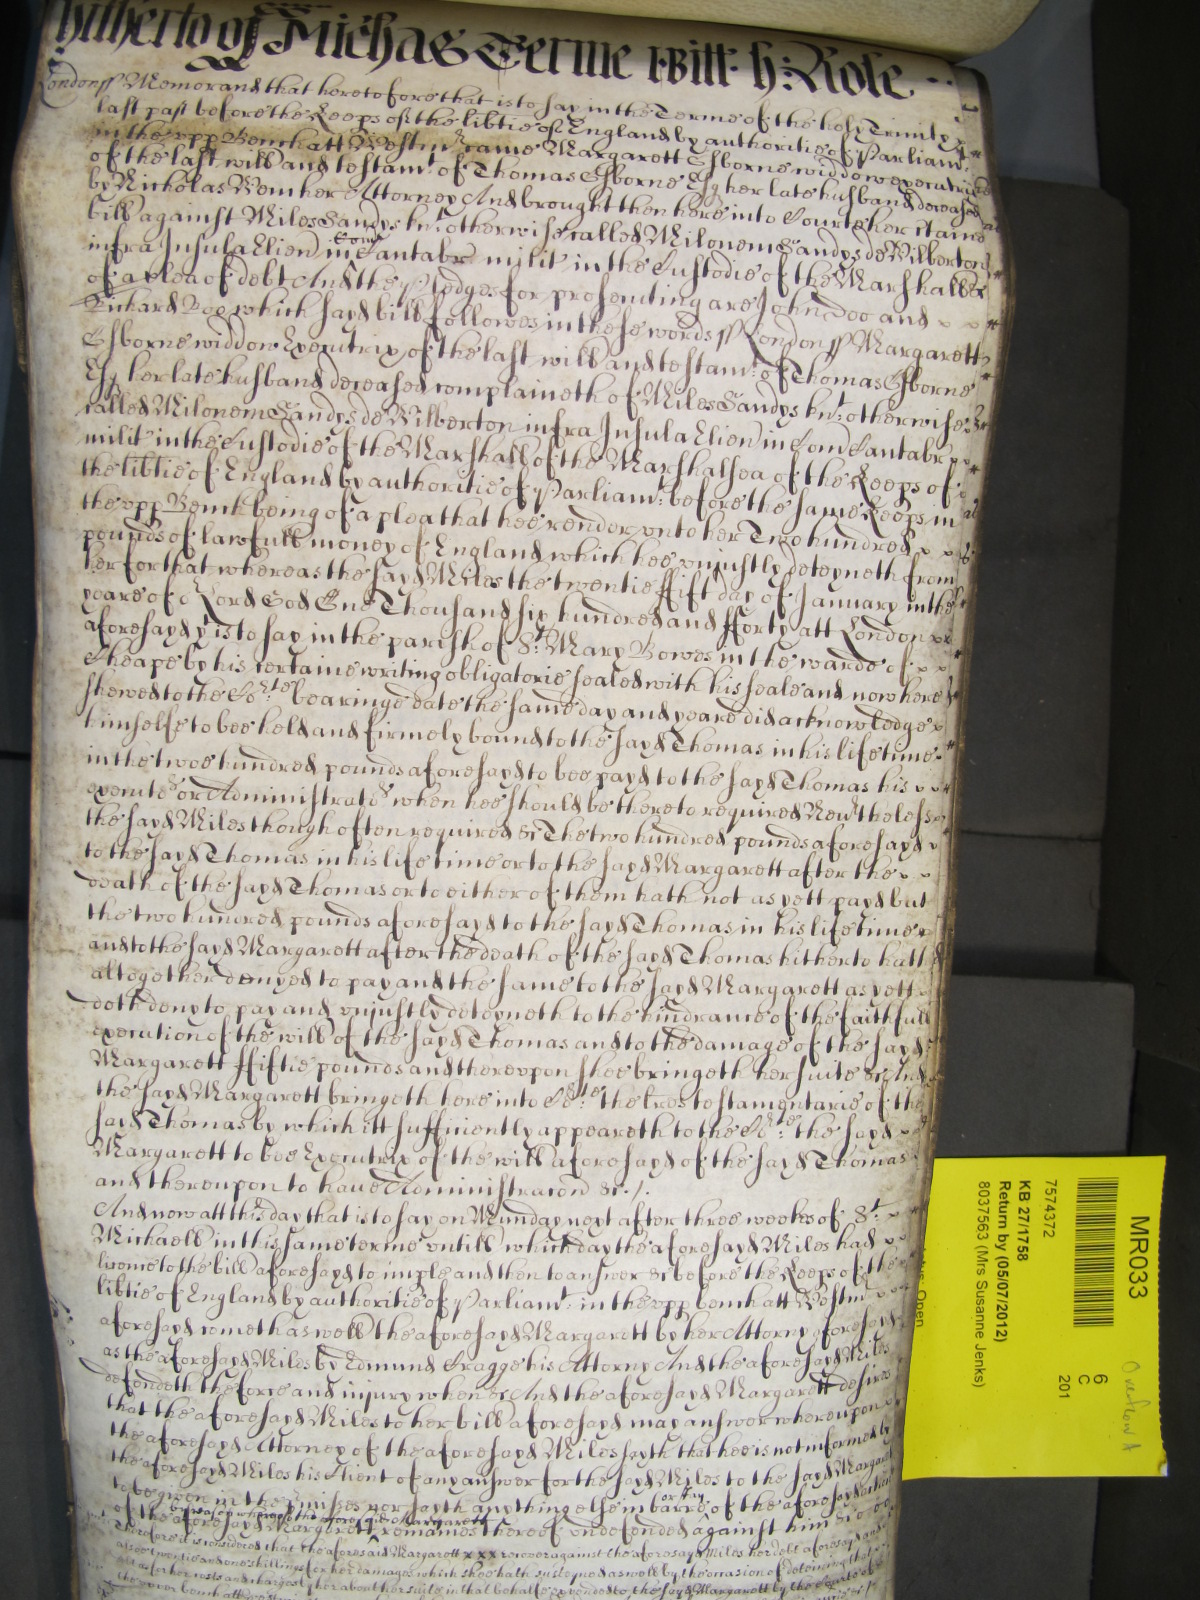 hitherto of Michas Terme witt. h: Role
London ss Memorand that heretofore that is to say in the Terme of the holy Trinity
last past before the Keeps of the libtie of England by authoritie of Parliamt
in the upp Bench att Westm came Margarett Osborne widdow executrix
of the last will and testamt of Thomas Osborne Esq her late husband deceased
by Nicholas Wemher Attorney And brought then here into Courte her rtaine
bill against Miles Sandys knt otherwise called Milonem Sandys de Wilberton
infra Insula Elien in Com Cantabr milit in the Custodie of the Marshall &c
of a plea of debt And the Pledges for prosecuting are John Doo and
Richard Roe which sayd bill followes in these words ss London ss Margarett
Osborne widdow Executrix of the last will and testamt of Thomas Osborne
Esq her late husband deceased complaineth of Miles Sandys knt otherwise
called Milonem Sandys de Wilberton infra Insula Elien in Com Cantabr
milit in the Custodie of the Marshall of the Marshalsea of the Keeps of
the libtie of England by authoritie of Parliamt before the same Keeps in
the upp Bench being of a plea that hee render unto her Two hundred
pounds of lawfull money of England which hee uniustly deteyneth from
her for that whereas the sayd Miles the twentie ffift day of January in the
yeare of o Lord God One Thousand six hundred and fforty att London
aforesayd yt is to say in the parish of St Mary Bowes in the warde of
Cheape by his certaine writing obligatorie sealed with his seale and now here
shewed to the Corte bearinge date the same day and yeare did acknowledge
himselfe to bee held and firmely bound to the sayd Thomas in his life time
in the twoe hundred pounds aforesayd to bee payd to the sayd Thomas his
executrs or Administratrs when hee should be thereto required Neverthelesse
the sayd Miles though often required &c The two hundred pounds aforesayd
to the sayd Thomas in his life time or to the sayd Margarett after the
death of the sayd Thomas or to either of them hath not as yett payd but
the two hundred pounds aforesayd to the sayd Thomas in his life time
and to the sayd Margarett after the death of the sayd Thomas hitherto hath
altogether denyed to pay and the same to the sayd Margarett as yett
doth deny to pay and uniustly deteyneth to the hindrance of the faithfull
execution of the will of the sayd Thomas and to the damage of the sayd
Margarett ffiftie pounds and thereupon shee bringeth her suite &c And
the sayd Margarett bringeth here into Corte the lres testamentarie of the
sayd Thomas by which itt sufficiently appeareth to the Corte the sayd
Margarett to bee Executrix of the will aforesayd of the sayd Thomas
and thereupon to haue Administracon &c./.
And now att this day that is to say on Munday next after three weekes of St
Michaell in this same terme untill which day the aforesayd Miles had
licence to the bill aforesayd to imple and then to answer &c before the Keeps of the
libtie of England by authoritie of Parliamt in the upp bench att Westm
aforesayd cometh as well the aforesayd Margarett by her Attorny aforesayd
as the aforesayd Miles by Edmund Cragge his Attorny And the aforesayd Miles
defendeth the force and iniury when &c And the aforesayd Margarett desires
that the aforesayd Miles to her bill aforesayd may answer whereupon
the aforesayd Attorney of the aforesayd Miles sayth that hee is not informed by
the aforesayd Miles his Client of any answer for the sayd Miles to the sayd Margarett
to be given in the pmises nor sayth any thing else in barre of the aforesayd action
of the aforesayd Margarett remaines thereof undefended against him &c
Therefore it is considered that the aforesaid Margarett xxx recover against the aforesayd Miles her debt aforesayd and
alsoe twentie and one shillings for her damages which shee hath susteyned as well by the occasion of deteining that
as for her costs and charges by her about her suite in that behalfe expended to the sayd Margarett by the Courte of
MR033
7574372
KB 27/1758
Return by (05/07/2012)
8037563 (Mrs Susanne Jenks)
6
C
201
Overflow A
Open